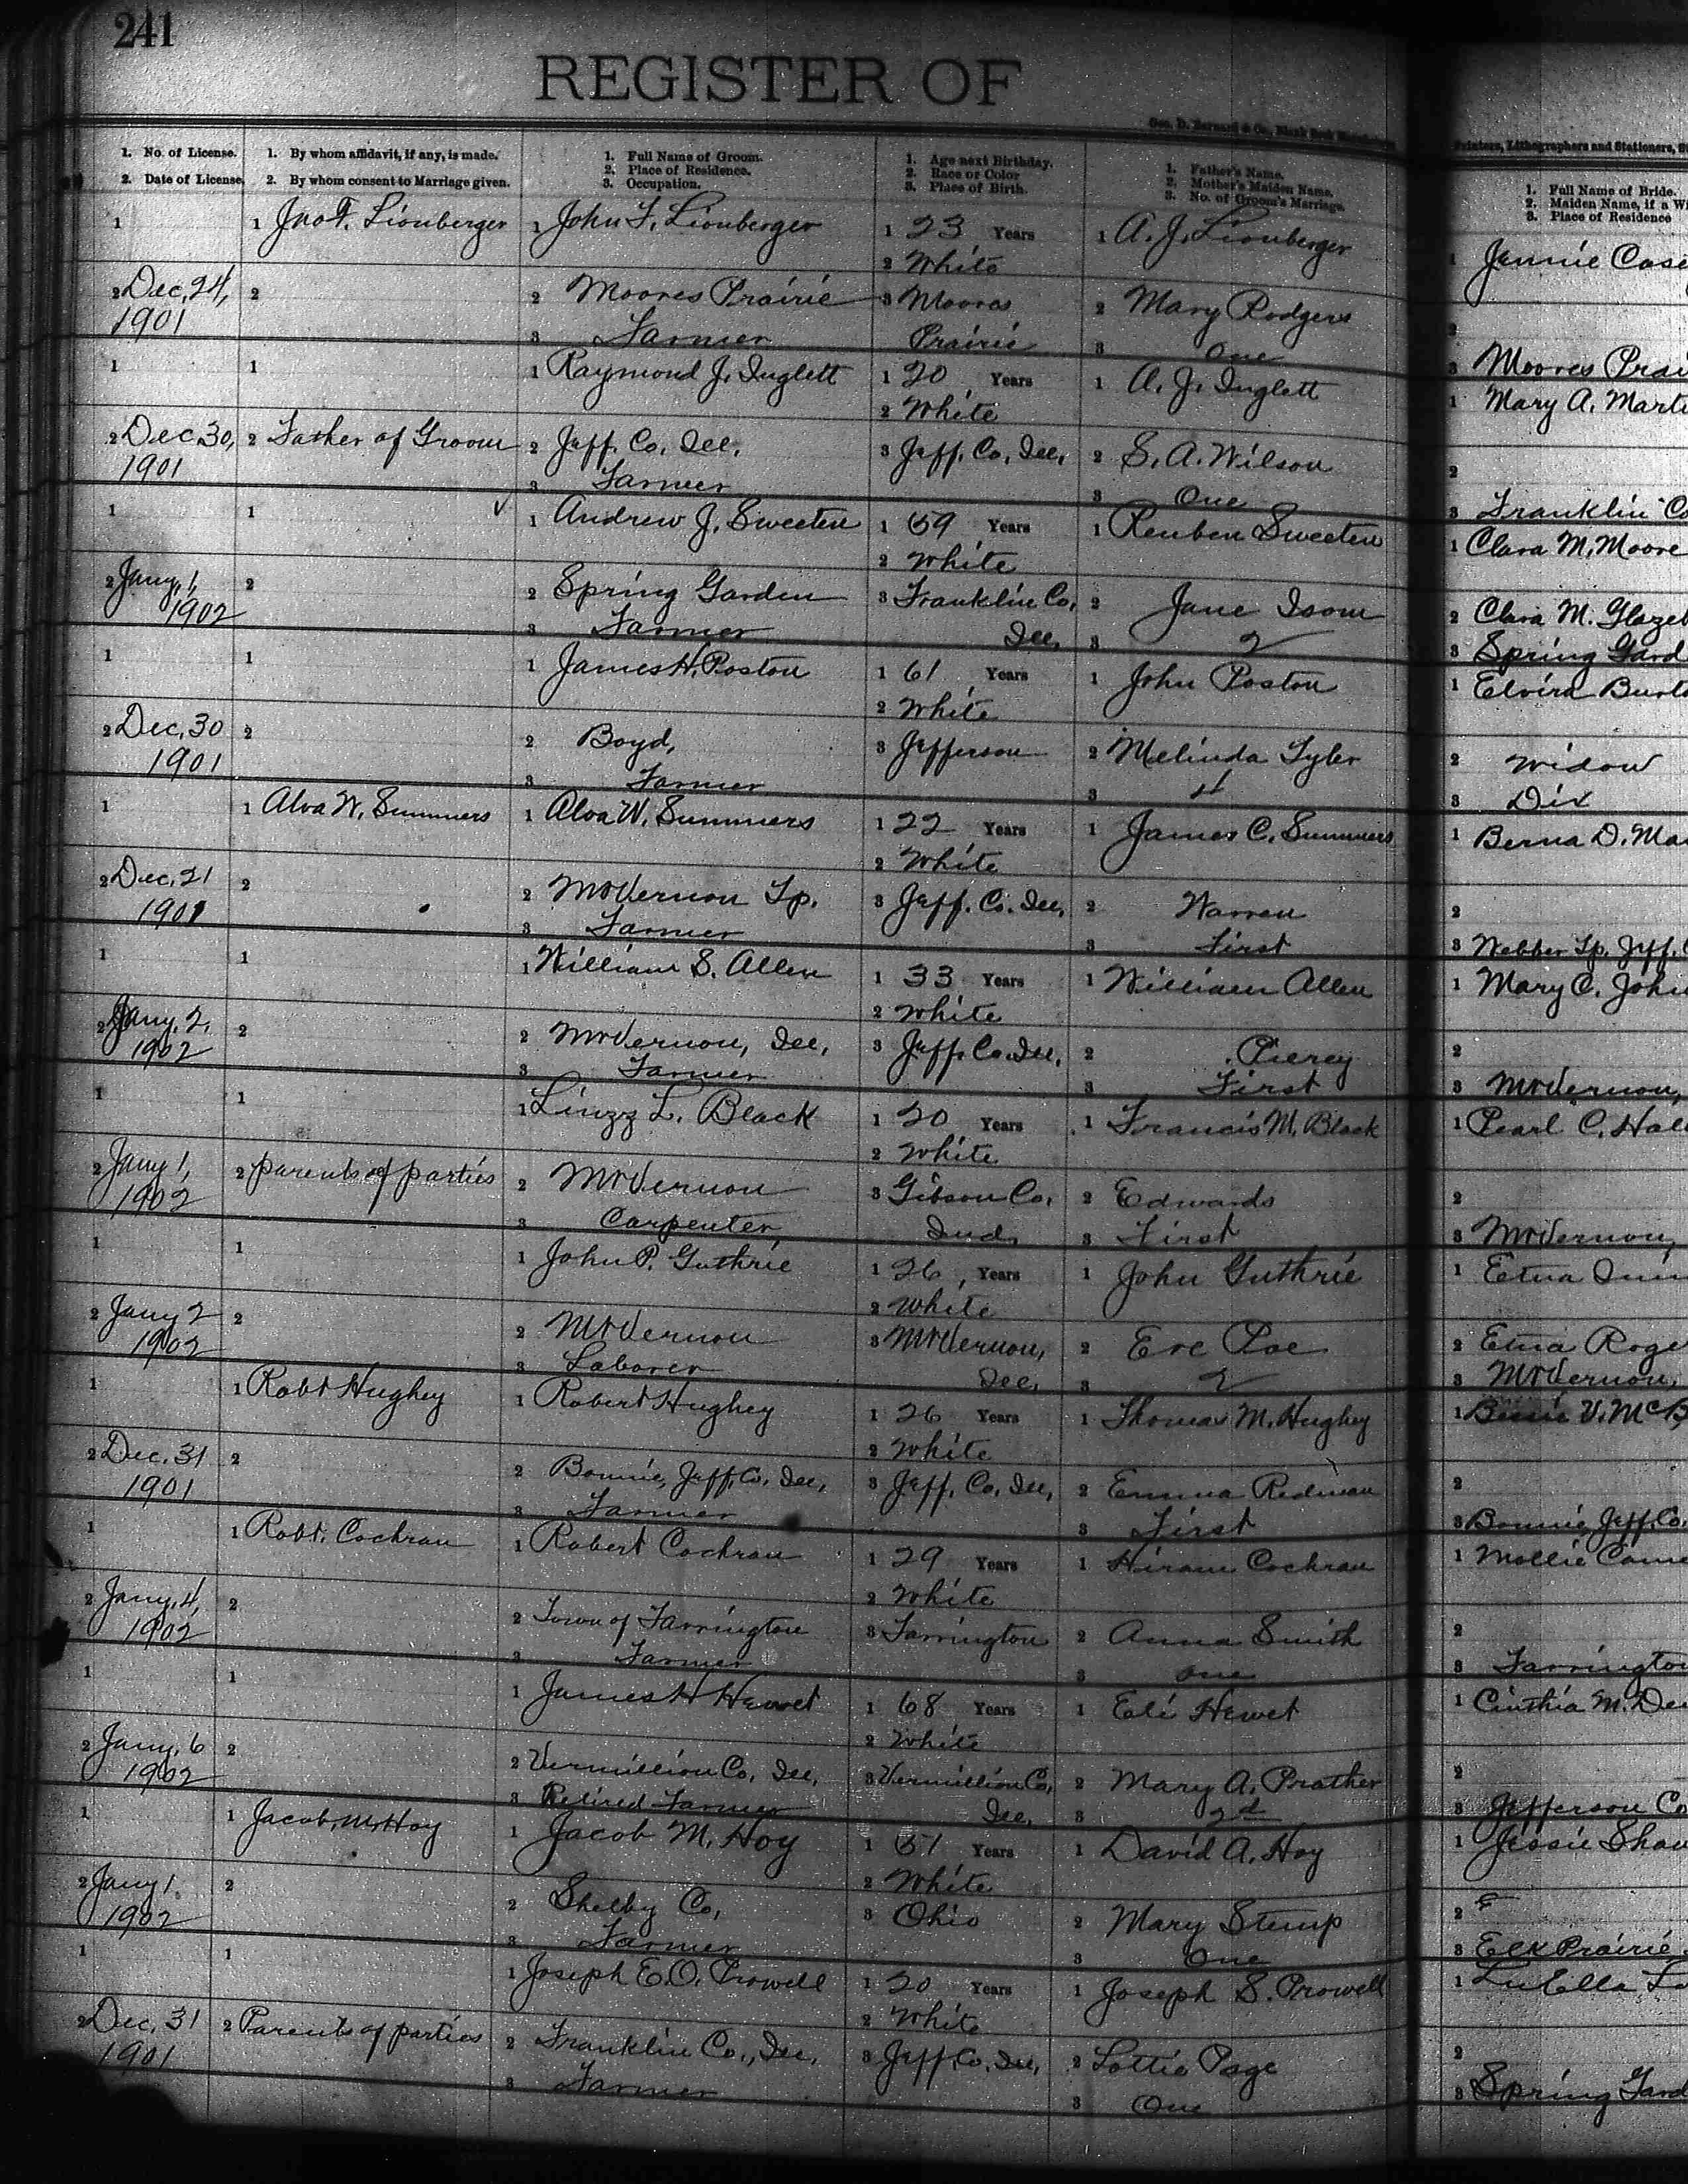 241
REGISTER OF
Geo. D. Barnard & Co., Blank Book
Printers, Lithographers and Stationers, S
1. No. of License.
2. Date of License.
1. By whom affidavit, if any, is made.
2. By whom consent to Marriage given.
1. Full Name of Groom.
2. Place of Residence.
3. Occupation.
1. Age next Birthday.
2. Race or Color
3. Place of Birth.
1. Father's Name.
2. Mother's Maiden Name.
3. No. of Groom's Marriage.
1. Full Name of Bride.
2. Maiden Name, if a Wi
3. Place of Residence
1
2 Dec. 24,
1901
1 Jno. F. Lionberger
2
1 John F. Lionberger
2 Moores Prairie
3 Farmer
1 23 Years
2 White
3 Moores
Prairie
1 A. J. Lionberger
2 Mary Rodgers
3 One
1 Jennie Case
2
3 Moores Prai
1
2 Dec 30,
1901
1
2 Father of Groom
1 Raymond J. Inglett
2 Jeff. Co. Ill.
3 Farmer
1 20 Years
2 White
3 Jeff. Co. Ill.
1 A. J. Inglett
2 S. A. Wilson
3 One
1 Mary A. Marti
2
3 Franklin Co
1
2 Jany, 1,
1902
1
2
1 Andrew J. Sweeten
2 Spring Garden
3 Farmer
1 59 Years
2 White
3 Franklin Co,
Ill.
1 Reuben Sweeten
2 Jane Isom
3 2
1 Clara M. Moore
2 Clara M. Glazeb
3 Spring Gard
1
2 Dec, 30
1901
1
2
1 James H. Poston
2 Boyd,
3 Farmer
1 61 Years
2 White
3 Jefferson
1 John Poston
2 Melinda Tyler
3 4
1 Elvira Burto
2 Widow
3 Dix
1
2 Dec, 21
1901
1 Alva W. Summers
2
1 Alva W. Summers
2 Mt Vernon Tp.
3 Farmer
1 22 Years
2 White
3 Jeff. Co. Ill.
1 James C. Summers
2 Warren
3 First
1 Berna D. Ma
2
3 Webber Tp. Jeff. C
1
2 Jany. 2,
1902
1
2
1 William S. Allen
2 Mt Vernon, Ill,
3 Farmer
1 33 Years
2 White
3 Jeff. Co. Ill,
1 William Allen
2 Piercy
3 First
1 Mary C. John
2
3 Mt Vernon,
1
2 Jany 1,
1902
1
2 parents of parties
1 Linzz L. Black
2 Mt Vernon
3 Carpenter,
1 20 Years
2 White
3 Gibson Co,
Ind.
1 Francis M. Black
2 Edwards
3 First
1 Pearl C. Hal
2
3 Mt Vernon,
1
2 Jany 2
1902
1
2
1 John P. Guthrie
2 Mt Vernon
3 Laborer
1 26 Years
2 White
3 Mt Vernon,
Ill,
1 John Guthrie
2 Eve Poe
3 2
1 Etna
2 Etna Roge
3 Mt Vernon,
1
2 Dec. 31
1901
1 Robt Hughey
2
1 Robert Hughey
2 Bonnie, Jeff. Co, Ill,
3 Farmer
1 26 Years
2 White
3 Jeff. Co, Ill,
1 Thomas M. Hughey
2 Emma Redman
3 First
1 Bessie V. McB
2
3 Bonnie, Jeff. Co.
1
2 Jany, 4,
1902
1 Robt. Cochran
2
1 Robert Cochran
2 Town of Farrington
3 Farmer
1 29 Years
2 White
3 Farrington
1 Hiram Cochran
2 Anna Smith
3 one
1 Mollie Came
2
3 Farrington
1
2 Jany. 6
1902
1
2
1 James H Hewet
2 Vermillion Co, Ill,
3 Retired Farmer
1 68 Years
2 White
3 Vermillion Co,
Ill.
1 Eli Hewet
2 Mary A. Prather
3 2d
1 Cinthia M. De
2
3 Jefferson Co
1
2 Jany 1
1902
1 Jacob M. Hoy
2
1 Jacob M. Hoy
2 Shelby Co,
3 Farmer
1 51 Years
2 White
3 Ohio
1 David A. Hoy
2 Mary Stemp
3 One
1 Jessie Shaw
2
3 Elk Prairie
1
2 Dec, 31
1901
1
2 Parents of parties
1 Joseph E. O. Prowell
2 Franklin Co., Ill.
3 Farmer
1 20 Years
2 White
3 Jeff. Co. Ill,
1 Joseph S. Prowell
2 Lottie Page
3 One
1 Lu Ella
2
3 Spring Gard